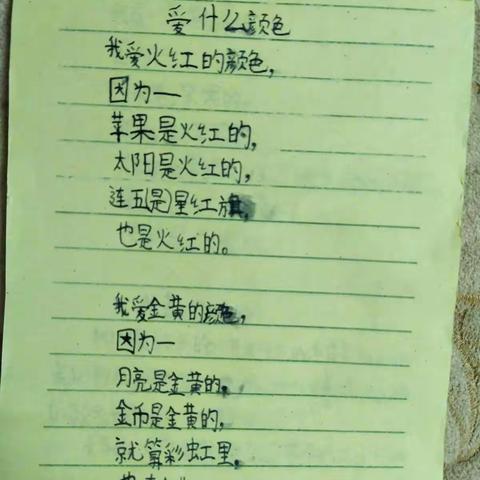 爱什么颜色
我爱火红的颜色，
因为—
苹果是火红的，
太阳是火红的，
连五是星红旗，
也是火红的。
我爱金黄的颜色，
因为—
月亮是金黄的，
金币是金黄的，
就算彩虹里，
也